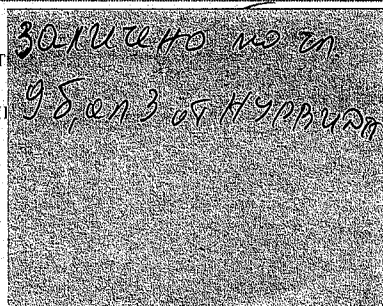 заличено по чл
9 б, ал 3 от НУРВИДГ